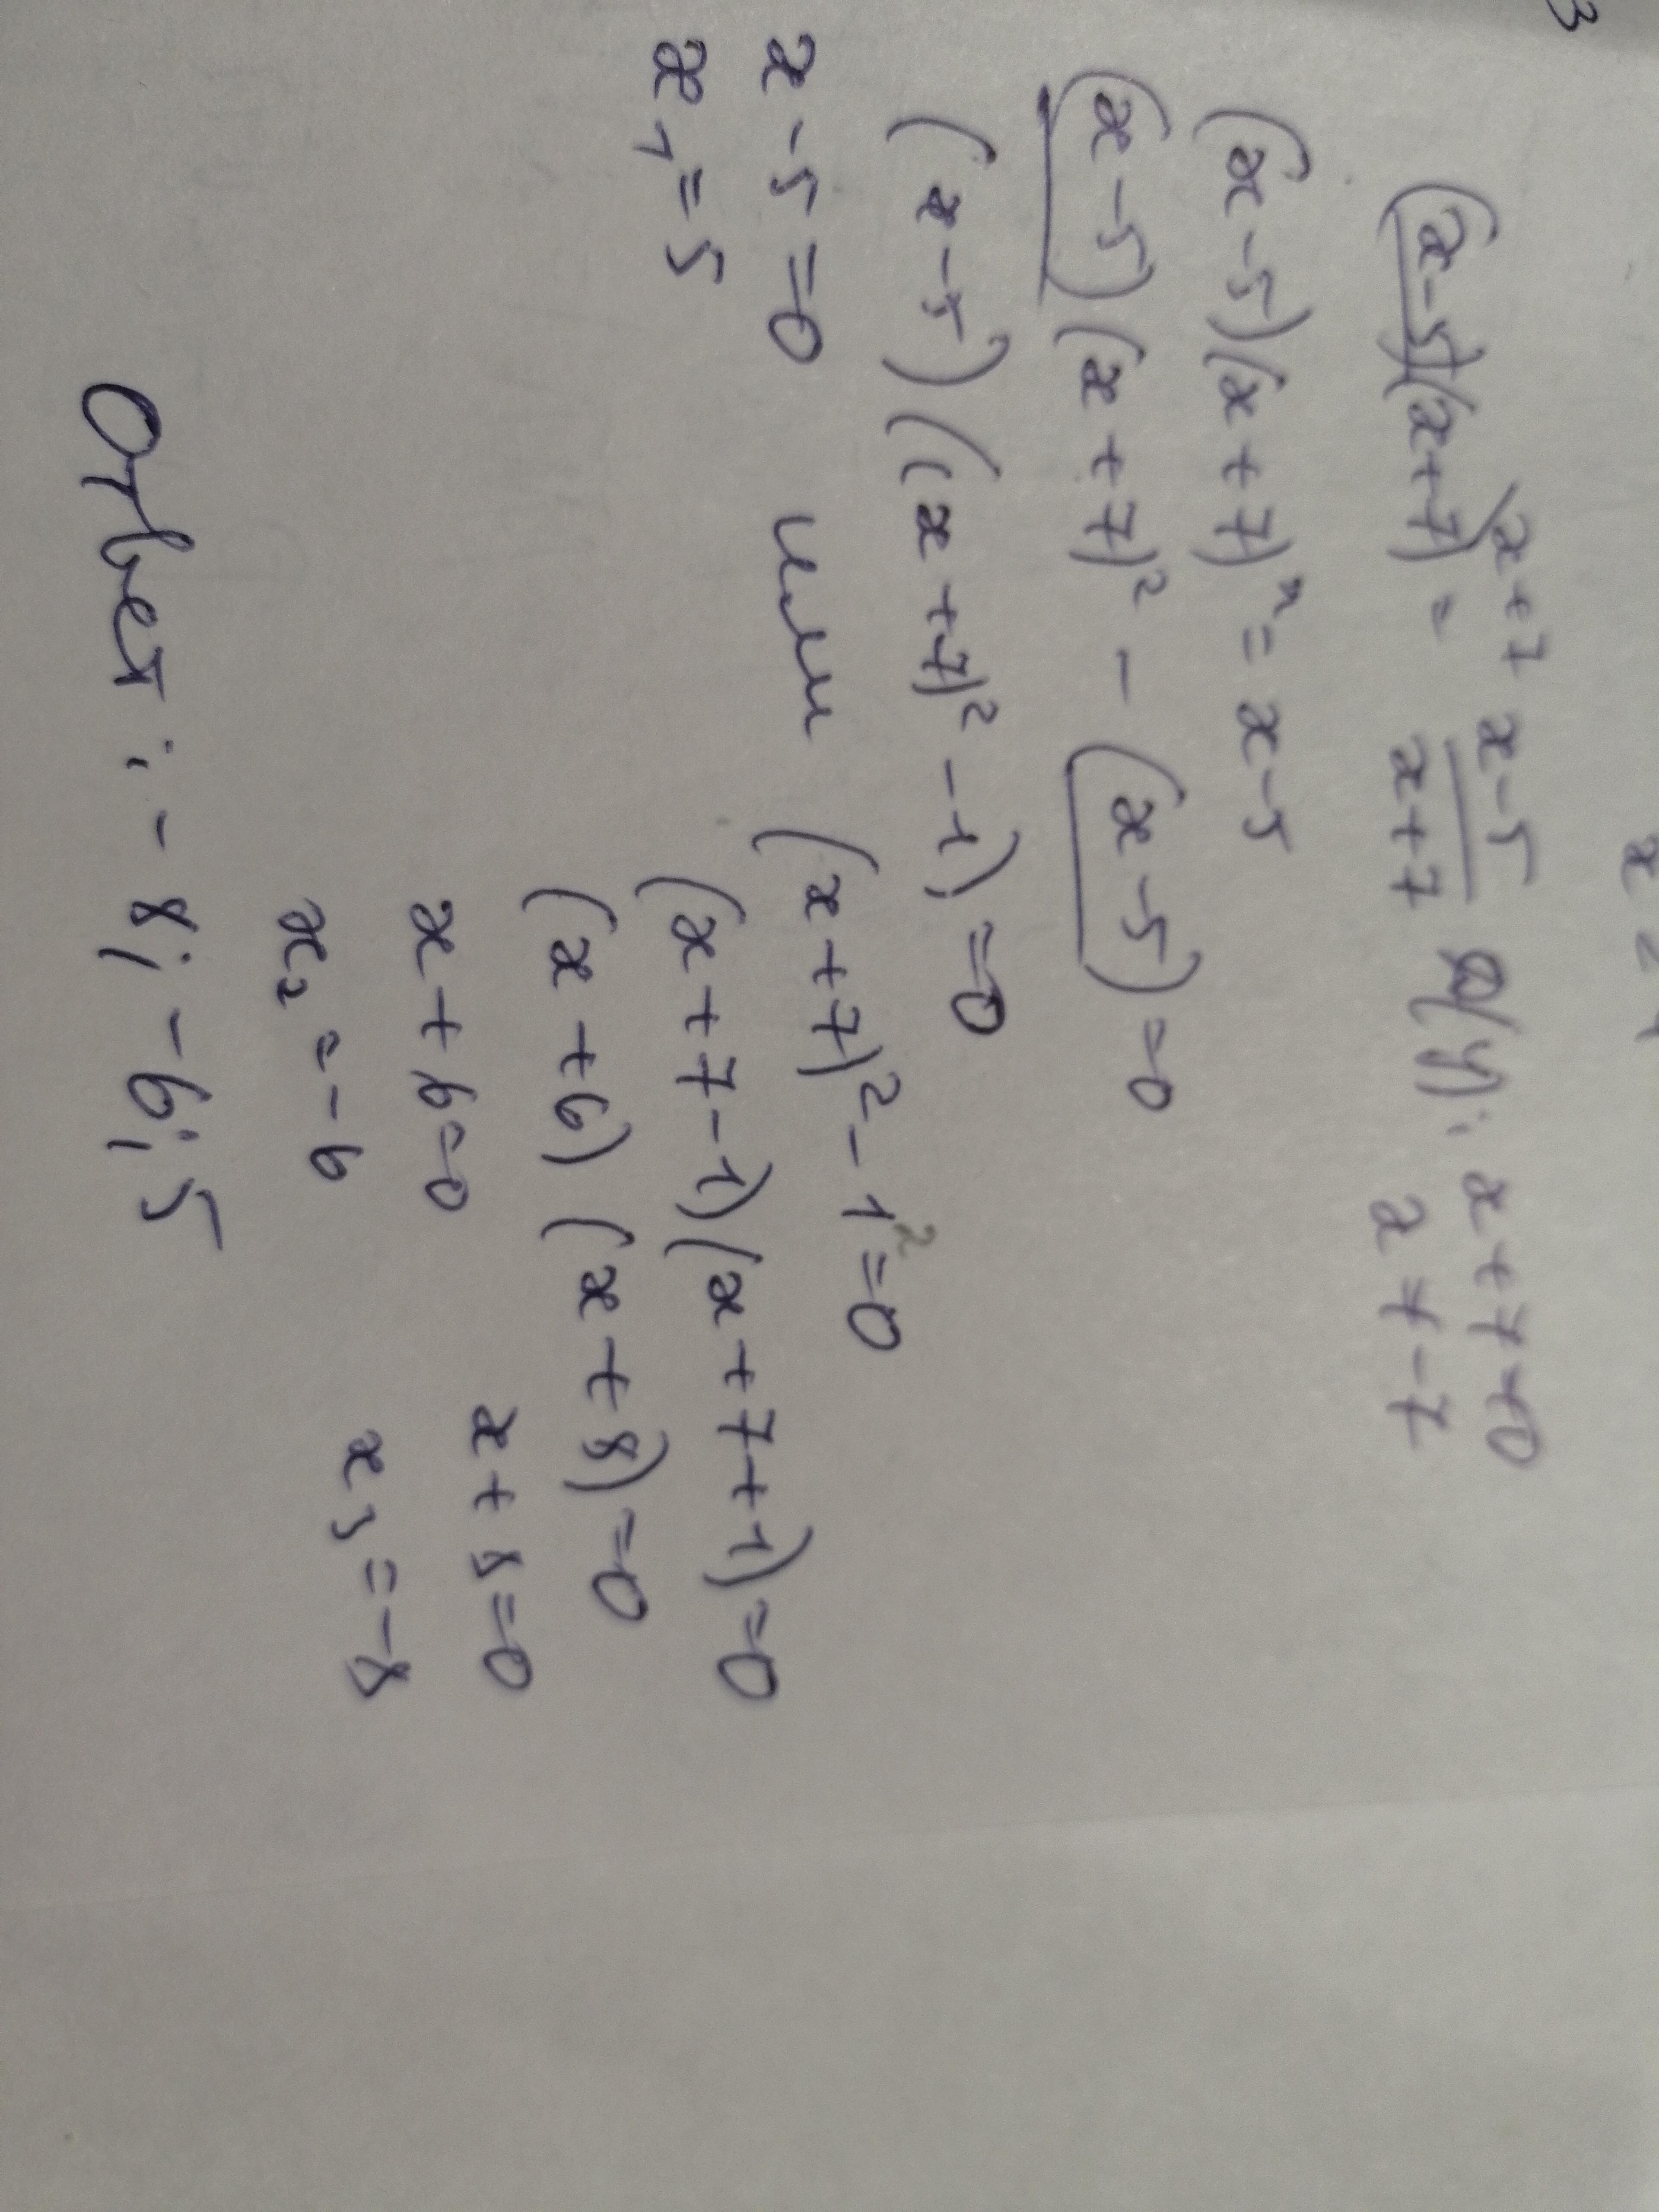 3
(x-5)(x+7) = \x+7 x-5/x+7 ОДЗ: x+7≠0
x≠-7
(x-5)(x+7)² = x-5
(x-5)(x+7)² - (x-5) = 0
(x-5)((x+7)² -1) = 0
x-5=0 или (x+7)² - 1² = 0
x₁=5 (x+7-1)(x+7+1)=0
(x+6)(x+8)=0
x+6=0 x+8=0
x₂=-6 x₃=-8
Ответ: -8; -6; 5